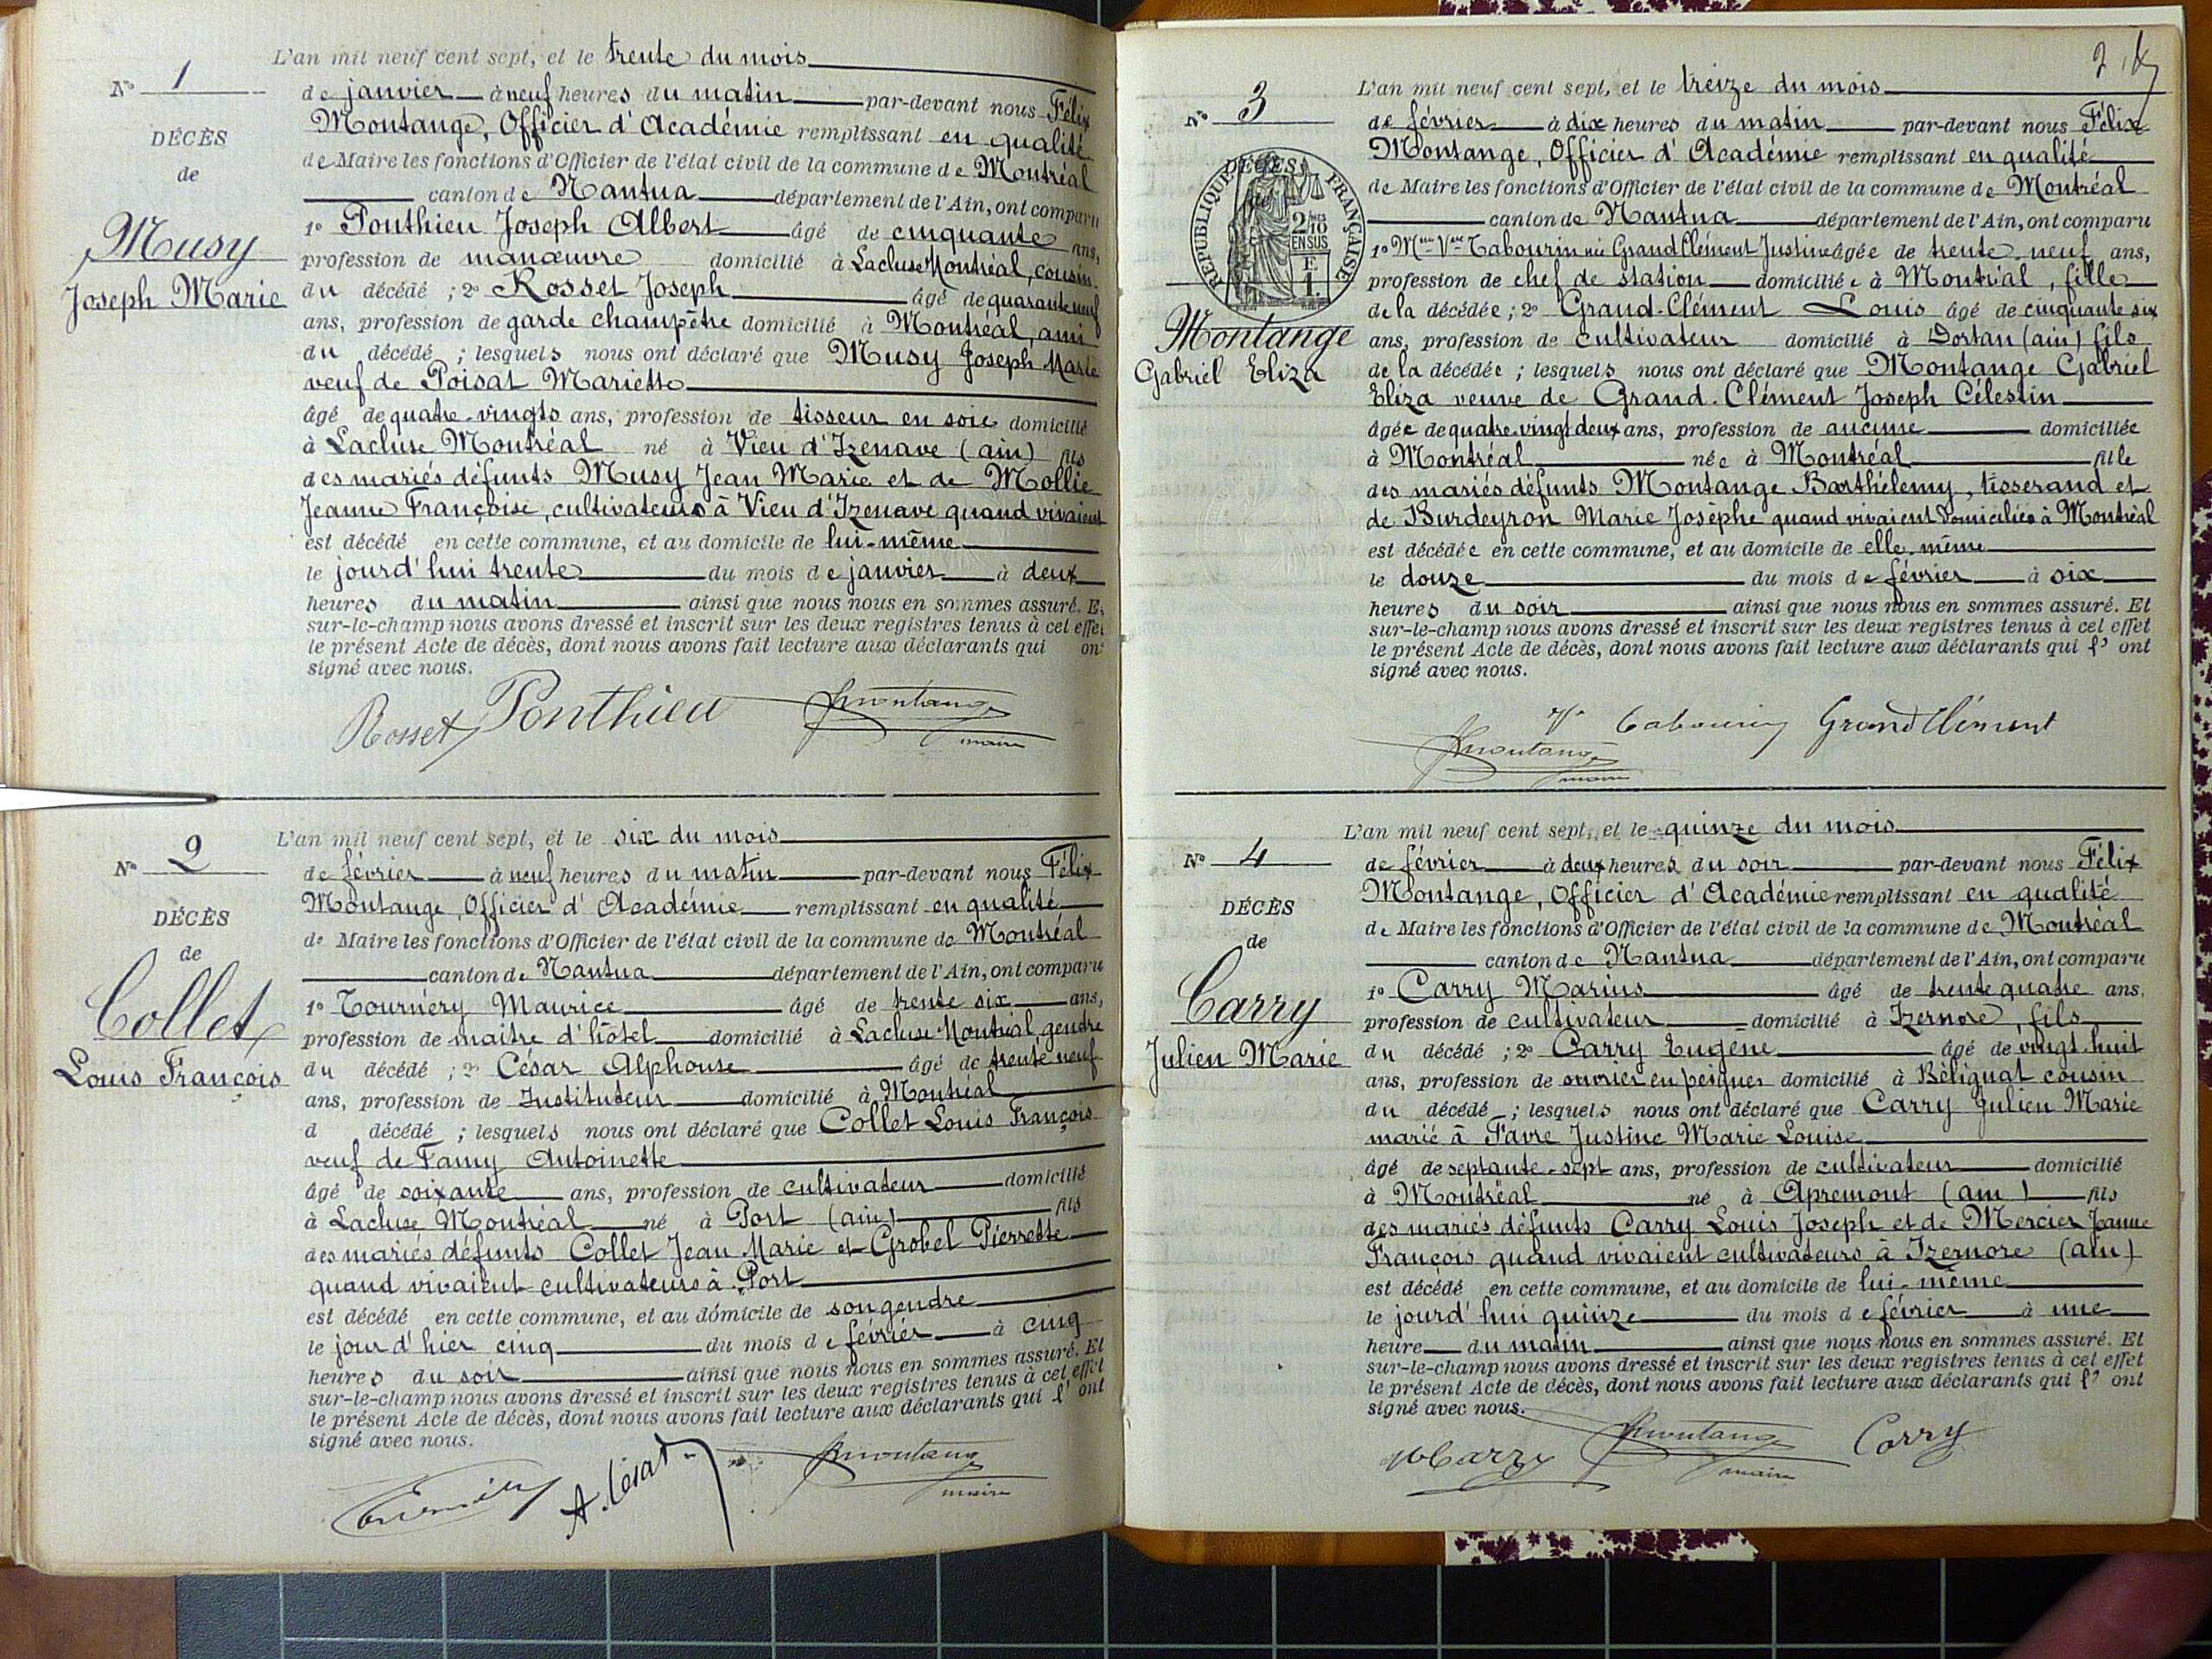 N° 1
DÉCÈS
de
Musy
Joseph Marie
L'an mil neuf cent sept, et le trente du mois
de janvier à neuf heures du matin par-devant nous Félix
Montange, Officier d'Académie remplissant en qualité
de Maire les fonctions d'Officier de l'état civil de la commune de Montréal
canton de Nantua département de l'Ain, ont comparu
1° Ponthieu Joseph Albert âgé de cinquante ans,
profession de manœuvre domicilié à Lacluse Montréal, cousin
du décédé ; 2° Rosset Joseph âgé de quarante neuf
ans, profession de garde champêtre domicilié à Montréal, ami
du décédé ; lesquels nous ont déclaré que Musy Joseph Marie
veuf de Poisat Mariette
âgé de quatre-vingts ans, profession de tisseur en soie domicilié
à Lacluse Montréal né à Vieu d'Izenave (ain) fils
des mariés défunts Musy Jean Marie et de Mollie
Jeanne Françoise, cultivateurs à Vieu d'Izenave quand vivaient
est décédé en cette commune, et au domicile de lui-même
le jourd'hui trente du mois de janvier à deux
heures du matin ainsi que nous nous en sommes assuré. Et
sur-le-champ nous avons dressé et inscrit sur les deux registres tenus à cet effet
le présent Acte de décès, dont nous avons fait lecture aux déclarants qui ont
signé avec nous.
Rosset Ponthieu FMontange
maire
N° 2
DÉCÈS
de
Collet
Louis François
L'an mil neuf cent sept, et le six du mois
de février à neuf heures du matin par-devant nous Félix
Montange, Officier d'Académie remplissant en qualité
de Maire les fonctions d'Officier de l'état civil de la commune de Montréal
canton de Nantua département de l'Ain, ont comparu
1° Tournery Maurice âgé de trente six ans,
profession de maitre d'hôtel domicilié à Lacluse Montréal gendre
du décédé ; 2° César Alphonse âgé de trente neuf
ans, profession de Instituteur domicilié à Montréal
d décédé ; lesquels nous ont déclaré que Collet Louis François
veuf de Famy Antoinette
âgé de soixante ans, profession de cultivateur domicilié
à Lacluse Montréal né à Port (ain) fils
des mariés défunts Collet Jean Marie et Grobel Pierrette
quand vivaient cultivateurs à Port
est décédé en cette commune, et au domicile de son gendre
le jour d'hier cinq du mois de février à cinq
heures du soir ainsi que nous nous en sommes assuré. Et
sur-le-champ nous avons dressé et inscrit sur les deux registres tenus à cet effet
le présent Acte de décès, dont nous avons fait lecture aux déclarants qui l' ont
signé avec nous.
A. César FMontange
maire
N° 3
DÉCÈS
RÉPUBLIQUE FRANÇAISE
2/10
EN SUS
Montange
Gabriel Eliza
L'an mil neuf cent sept, et le treize du mois
de février à dix heures du matin par-devant nous Félix
Montange, Officier d'Académie remplissant en qualité
de Maire les fonctions d'Officier de l'état civil de la commune de Montréal
canton de Nantua département de l'Ain, ont comparu
1° Mme Vve Tabourin née Grand Clément Justine âgée de trente-neuf ans,
profession de chef de station domiciliée à Montréal, fille
de la décédée ; 2° Grand-Clément Louis âgé de cinquante six
ans, profession de cultivateur domicilié à Dortan (ain) fils
de la décédée ; lesquels nous ont déclaré que Montange Gabriel
Eliza veuve de Grand-Clément Joseph Célestin
âgée de quatre-vingt deux ans, profession de aucune domiciliée
à Montréal née à Montréal fille
des mariés défunts Montange Barthélemy, tisserand et
de Burdeyron Marie Josèphe quand vivaient domiciliés à Montréal
est décédée en cette commune, et au domicile de elle-même
le douze du mois de février à six
heures du soir ainsi que nous nous en sommes assuré. Et
sur-le-champ nous avons dressé et inscrit sur les deux registres tenus à cet effet
le présent Acte de décès, dont nous avons fait lecture aux déclarants qui l' ont
signé avec nous.
FMontange Tabourin Grand Clément
maire
N° 4
DÉCÈS
de
Carry
Julien Marie
L'an mil neuf cent sept, et le quinze du mois
de février à deux heures du soir par-devant nous Félix
Montange, Officier d'Académie remplissant en qualité
de Maire les fonctions d'Officier de l'état civil de la commune de Montréal
canton de Nantua département de l'Ain, ont comparu
1° Carry Marius âgé de trente quatre ans,
profession de cultivateur domicilié à Izernore, fils
du décédé ; 2° Carry Eugène âgé de vingt-huit
ans, profession de ouvrier en peignes domicilié à Bélignat cousin
du décédé ; lesquels nous ont déclaré que Carry Julien Marie
marié à Favre Justine Marie Louise
âgé de septante-sept ans, profession de cultivateur domicilié
à Montréal né à Apremont (ain) fils
des mariés défunts Carry Louis Joseph et de Mercier Jeanne
François quand vivaient cultivateurs à Izernore (ain)
est décédé en cette commune, et au domicile de lui-même
le jourd'hui quinze du mois de février à une
heure du matin ainsi que nous nous en sommes assuré. Et
sur-le-champ nous avons dressé et inscrit sur les deux registres tenus à cet effet
le présent Acte de décès, dont nous avons fait lecture aux déclarants qui l' ont
signé avec nous.
MCarry FMontange Carry
maire